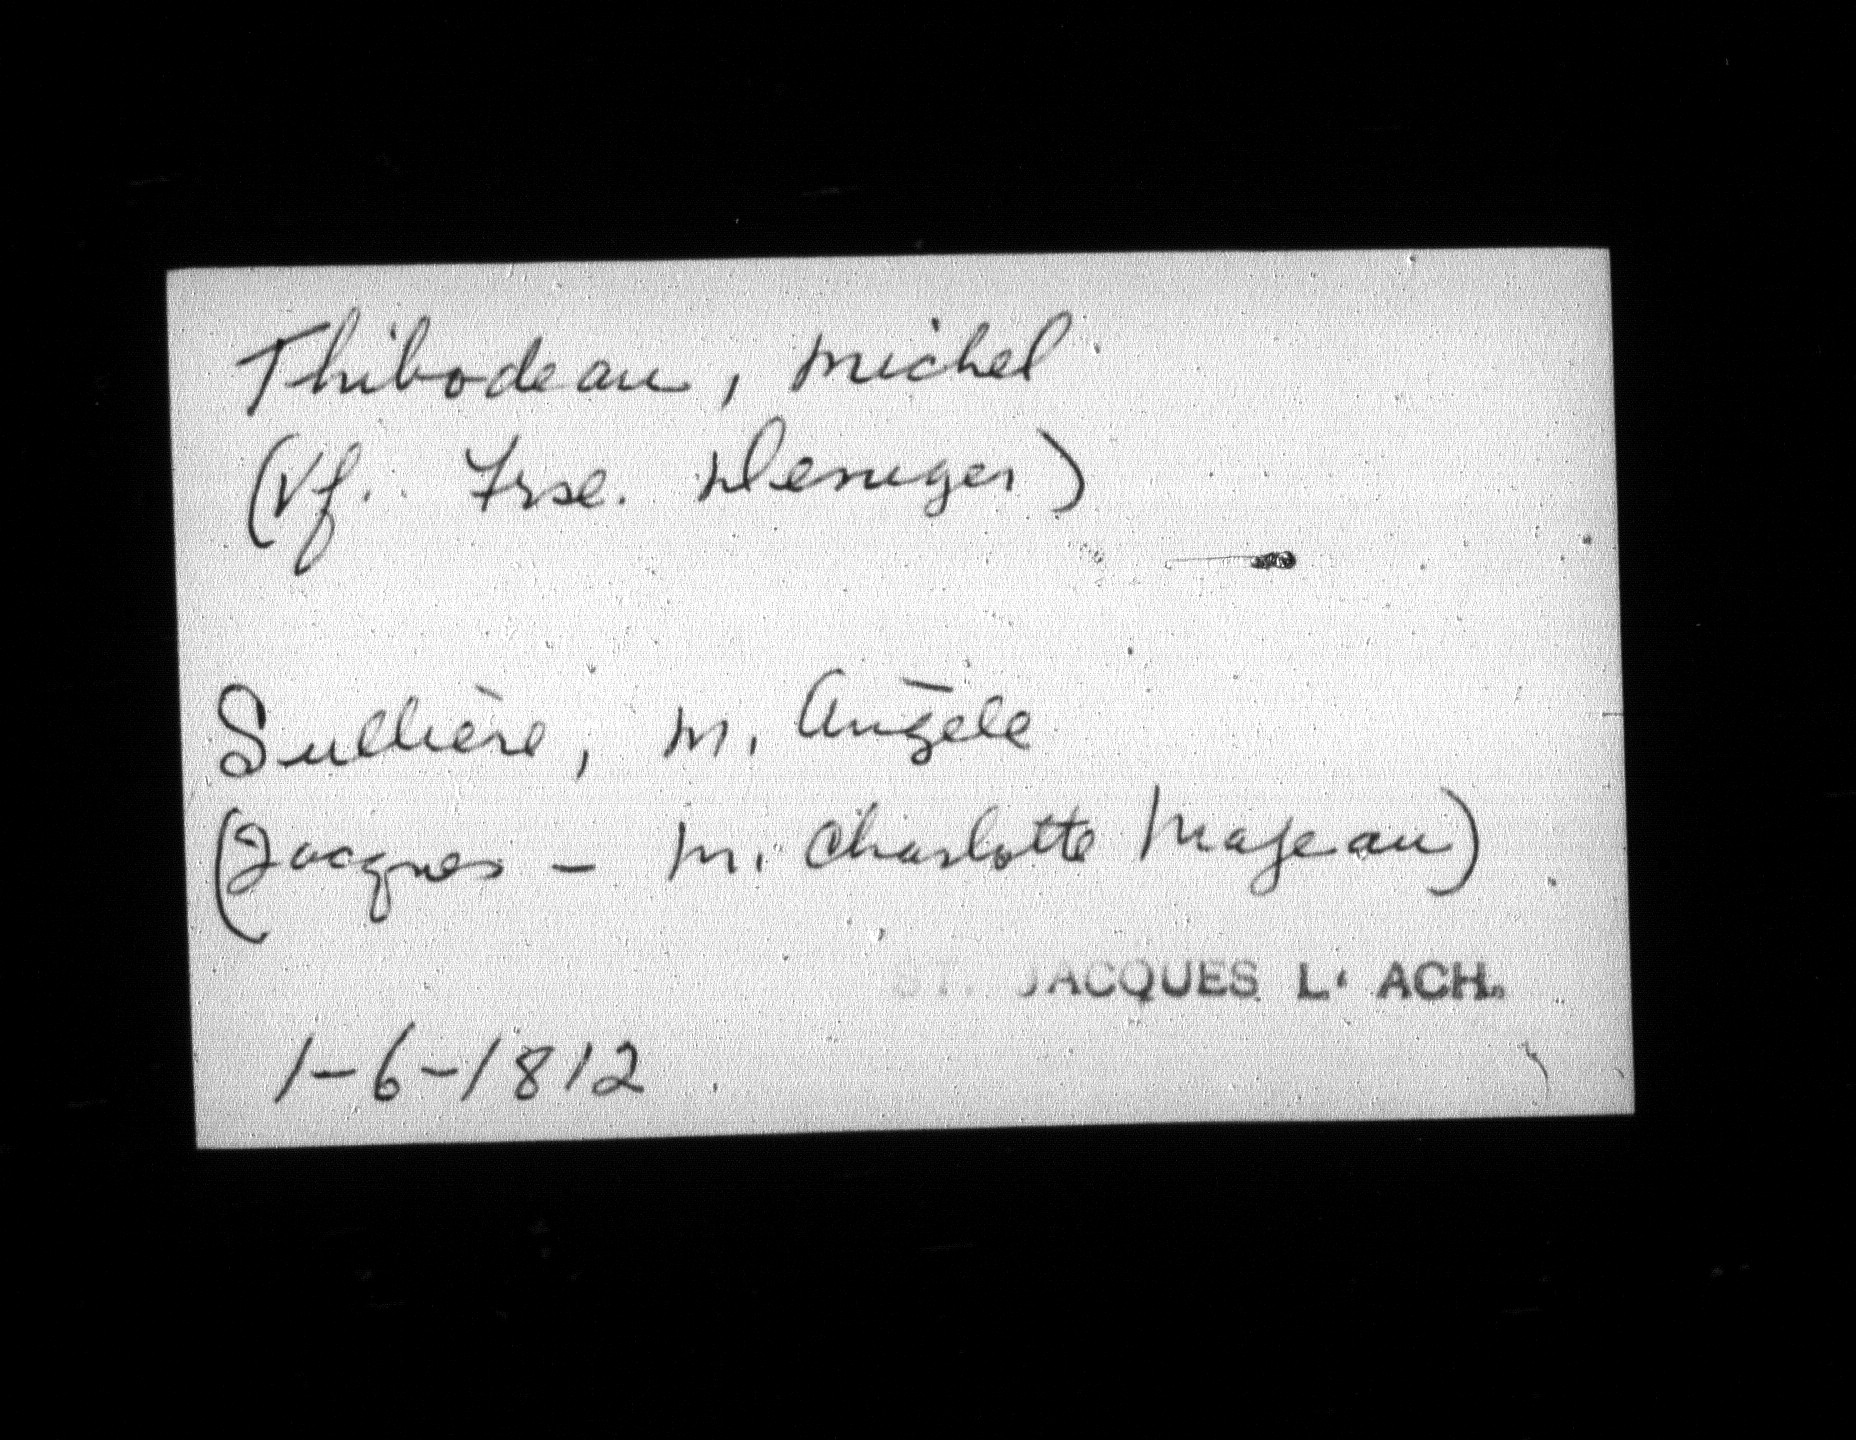 Thibodeau, Michel
(Vf. Frse. Deniger)
Sullière, M. Angèle
(Jacques - M. Charlotte Majeau)
ST. JACQUES L' ACH.
1-6-1812